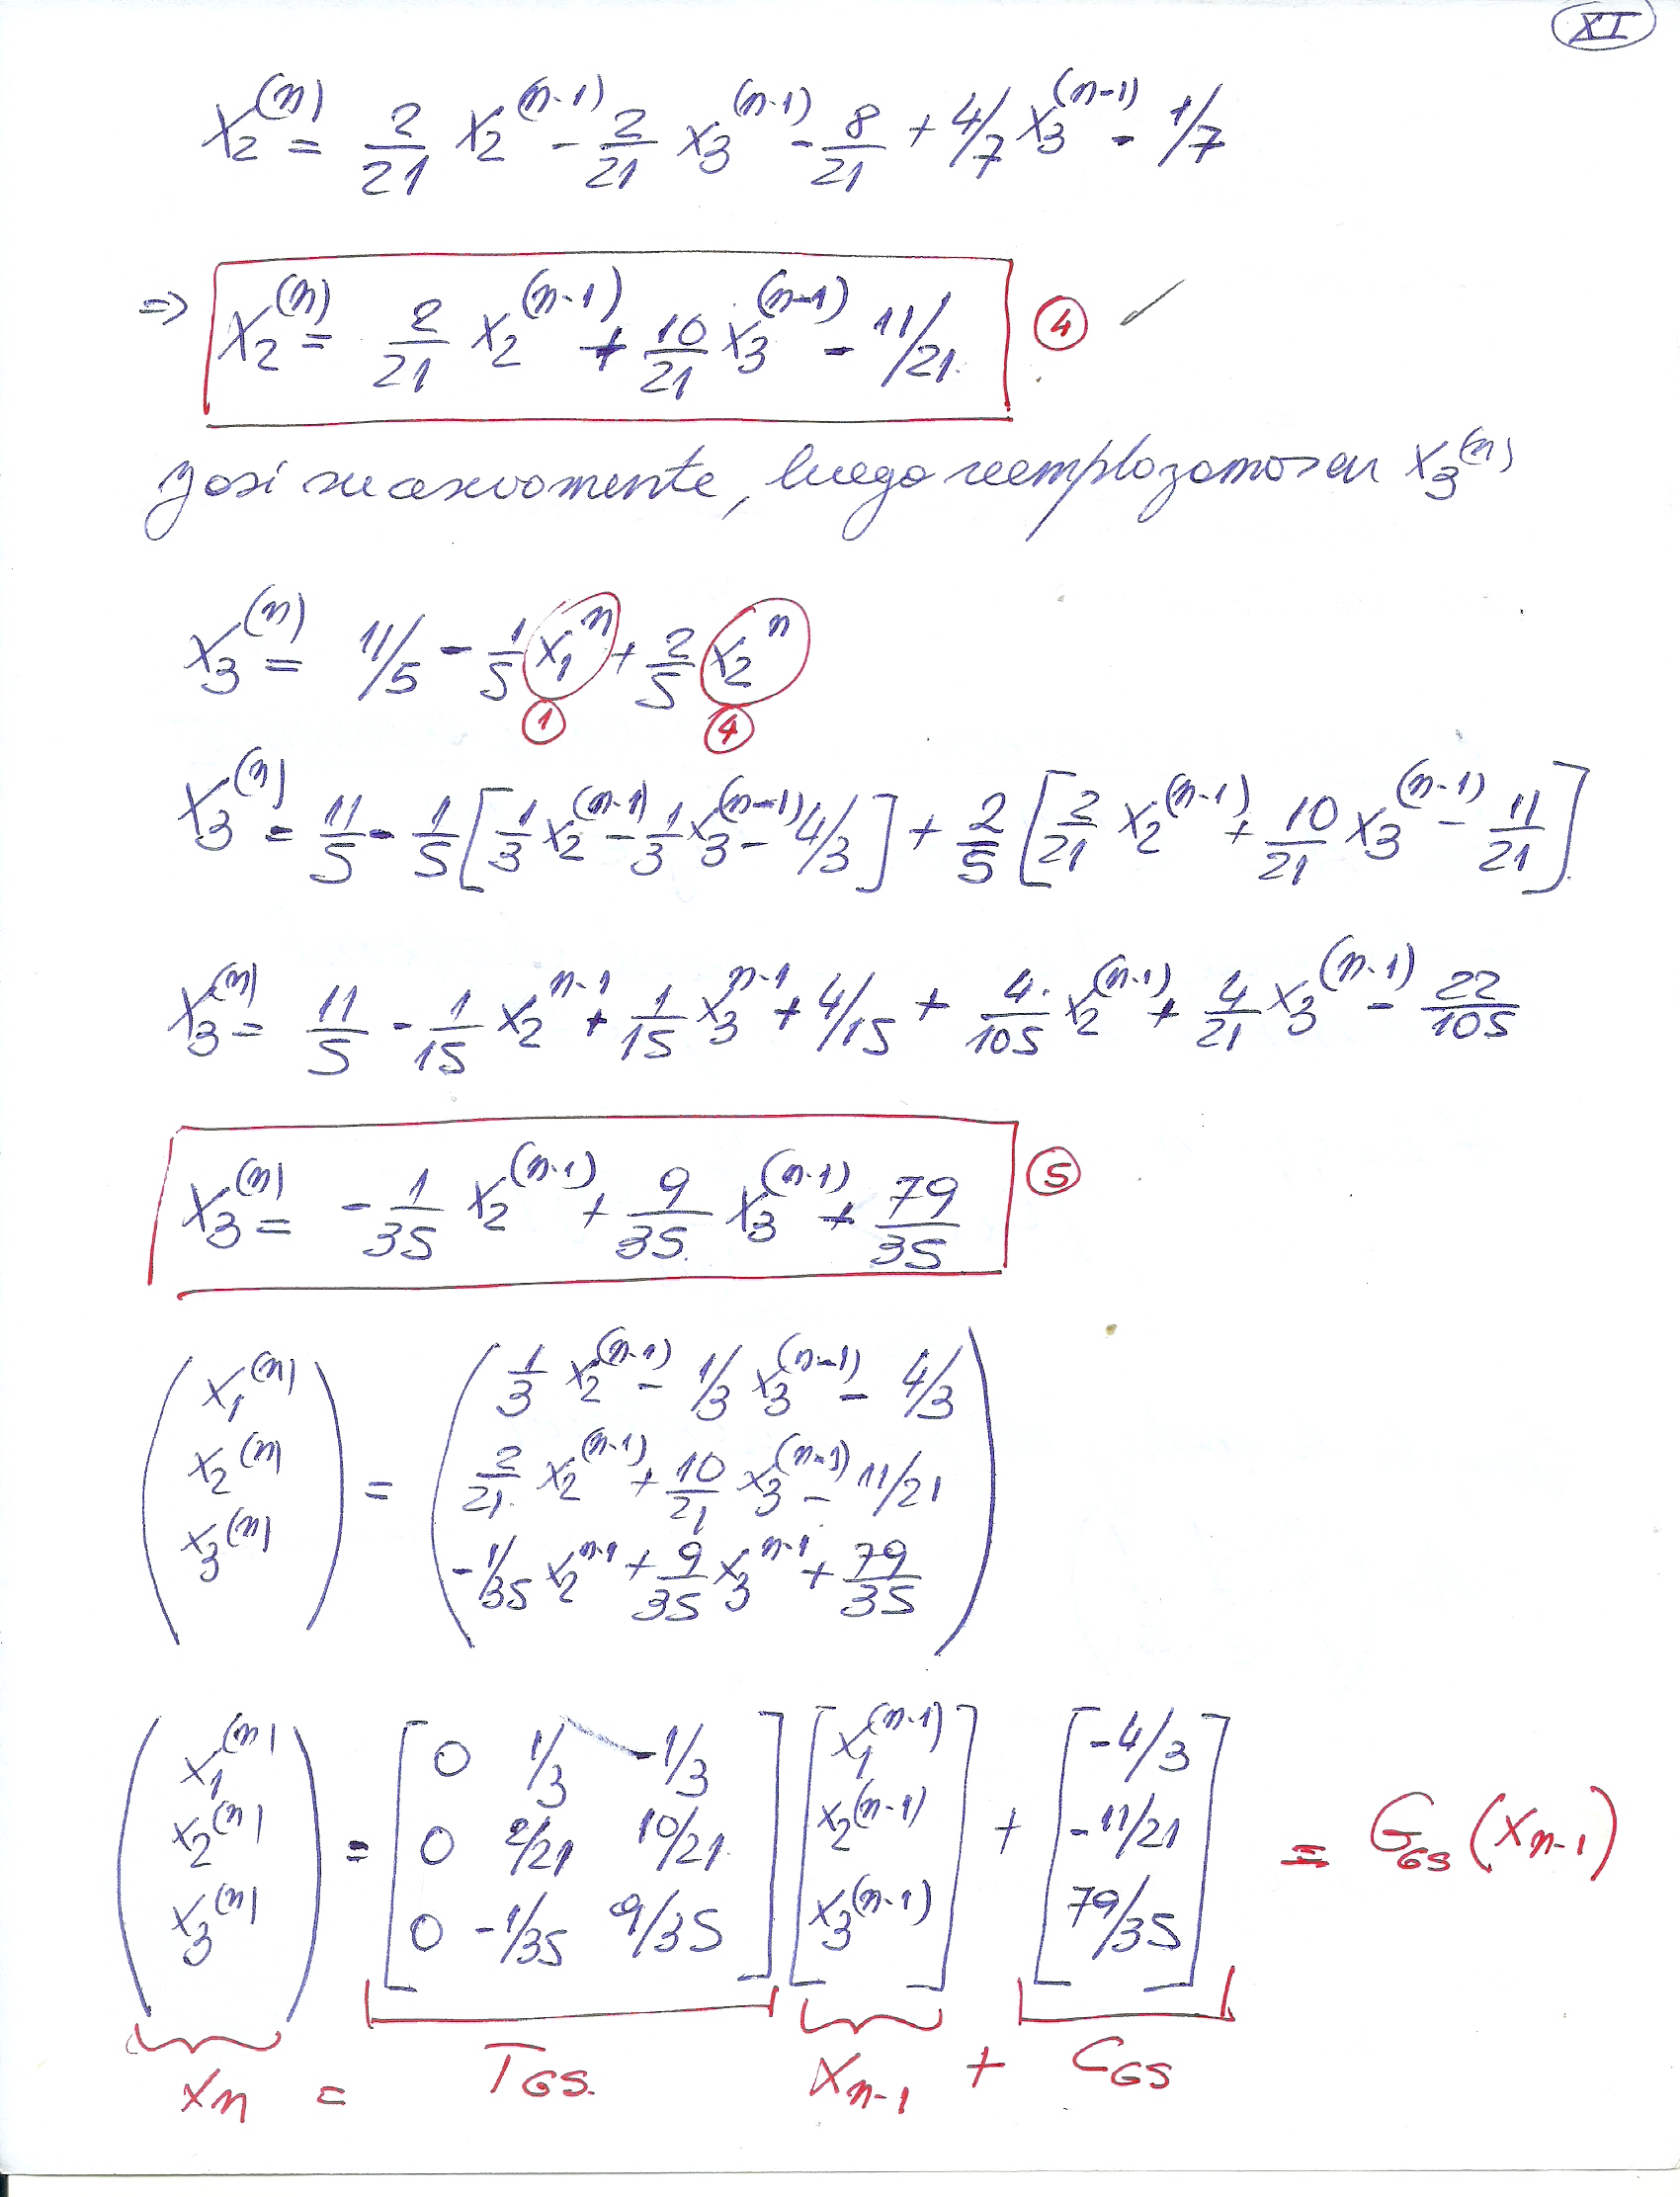 XI
x₂⁽ⁿ⁾ = 2/21 x₂⁽ⁿ⁻¹⁾ - 2/21 x₃⁽ⁿ⁻¹⁾ - 8/21 + 4/7 x₃⁽ⁿ⁻¹⁾ - 1/7
⇒ x₂⁽ⁿ⁾ = 2/21 x₂⁽ⁿ⁻¹⁾ + 10/21 x₃⁽ⁿ⁻¹⁾ - 11/21 ④ ✓
y así sucesivamente, luego reemplazamos en x₃⁽ⁿ⁾
x₃⁽ⁿ⁾ = 11/5 - 1/5 x₁ⁿ + 2/5 x₂ⁿ
① ④
x₃⁽ⁿ⁾ = 11/5 - 1/5 [1/3 x₂⁽ⁿ⁻¹⁾ - 1/3 x₃⁽ⁿ⁻¹⁾ - 4/3] + 2/5 [2/21 x₂⁽ⁿ⁻¹⁾ + 10/21 x₃⁽ⁿ⁻¹⁾ - 11/21]
x₃⁽ⁿ⁾ = 11/5 - 1/15 x₂ⁿ⁻¹ + 1/15 x₃ⁿ⁻¹ + 4/15 + 4/105 x₂⁽ⁿ⁻¹⁾ + 4/21 x₃⁽ⁿ⁻¹⁾ - 22/105
x₃⁽ⁿ⁾ = -1/35 x₂⁽ⁿ⁻¹⁾ + 9/35 x₃⁽ⁿ⁻¹⁾ + 79/35 ⑤
x₁⁽ⁿ⁾ 1/3 x₂⁽ⁿ⁻¹⁾ - 1/3 x₃⁽ⁿ⁻¹⁾ - 4/3
x₂⁽ⁿ⁾ = 2/21 x₂⁽ⁿ⁻¹⁾ + 10/21 x₃⁽ⁿ⁻¹⁾ - 11/21
x₃⁽ⁿ⁾ -1/35 x₂ⁿ⁻¹ + 9/35 x₃ⁿ⁻¹ + 79/35
x₁⁽ⁿ⁾ 0 1/3 -1/3 x₁⁽ⁿ⁻¹⁾ -4/3
x₂⁽ⁿ⁾ = 0 2/21 10/21 x₂⁽ⁿ⁻¹⁾ + -11/21 = G_GS (xₙ₋₁)
x₃⁽ⁿ⁾ 0 -1/35 9/35 x₃⁽ⁿ⁻¹⁾ 79/35
xₙ = T_GS. xₙ₋₁ + C_GS